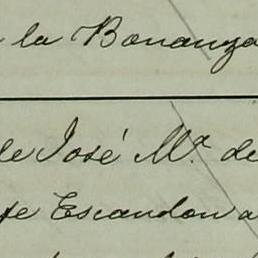 la Bonanza
de José Mª. de
Escandon a